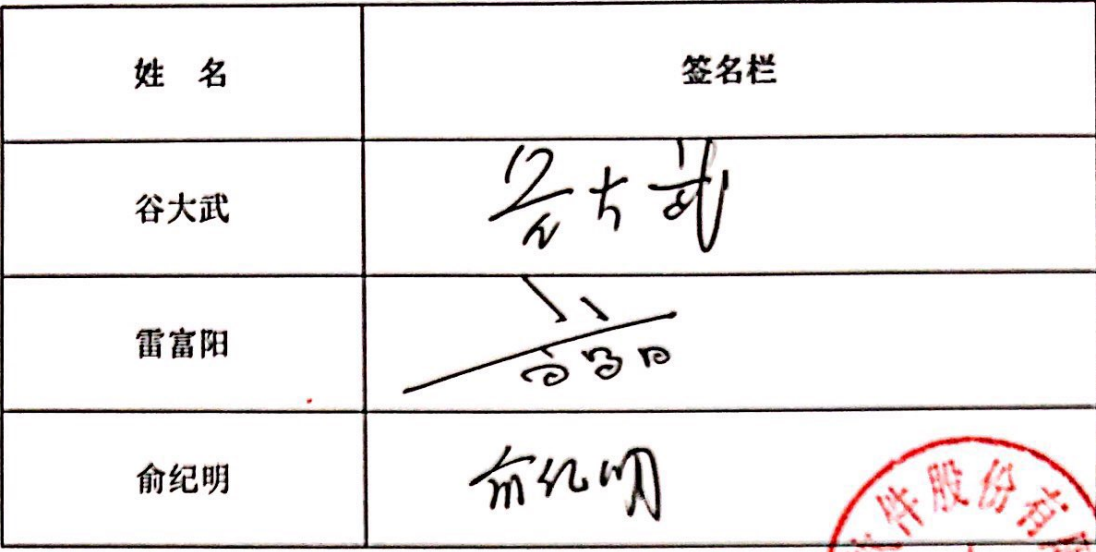 姓 名 签名栏
谷大武 谷大武
雷富阳
俞纪明 俞纪明
件股份有